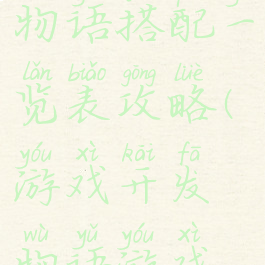 物语搭配一
lǎn biǎo gōng lüè
览表攻略(
yóu xì kāi fā
游戏开发
wù yǔ yóu xì
物语游戏